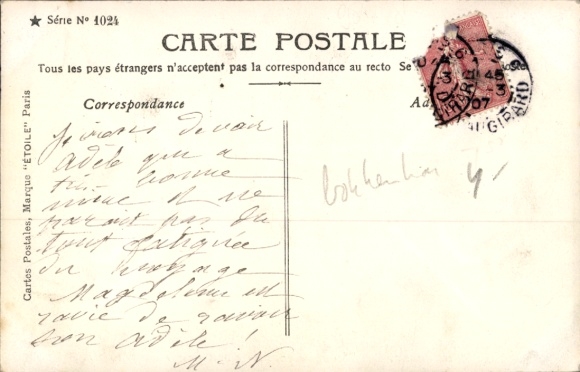 ★ Série Nº 1024
CARTE POSTALE
Tous les pays étrangers n'acceptent pas la correspondance au recto Se
Correspondance
Ad
Cartes Postales, Marque "ÉTOILE" Paris
07
VAUGIRARD
Je viens de voir
Adèle qui a
très bonne
mine et ne
parait pas du
tout fatiguée
du voyage
Magdeleine est
ravie de ravoir
son Adèle !
M. N.
4/